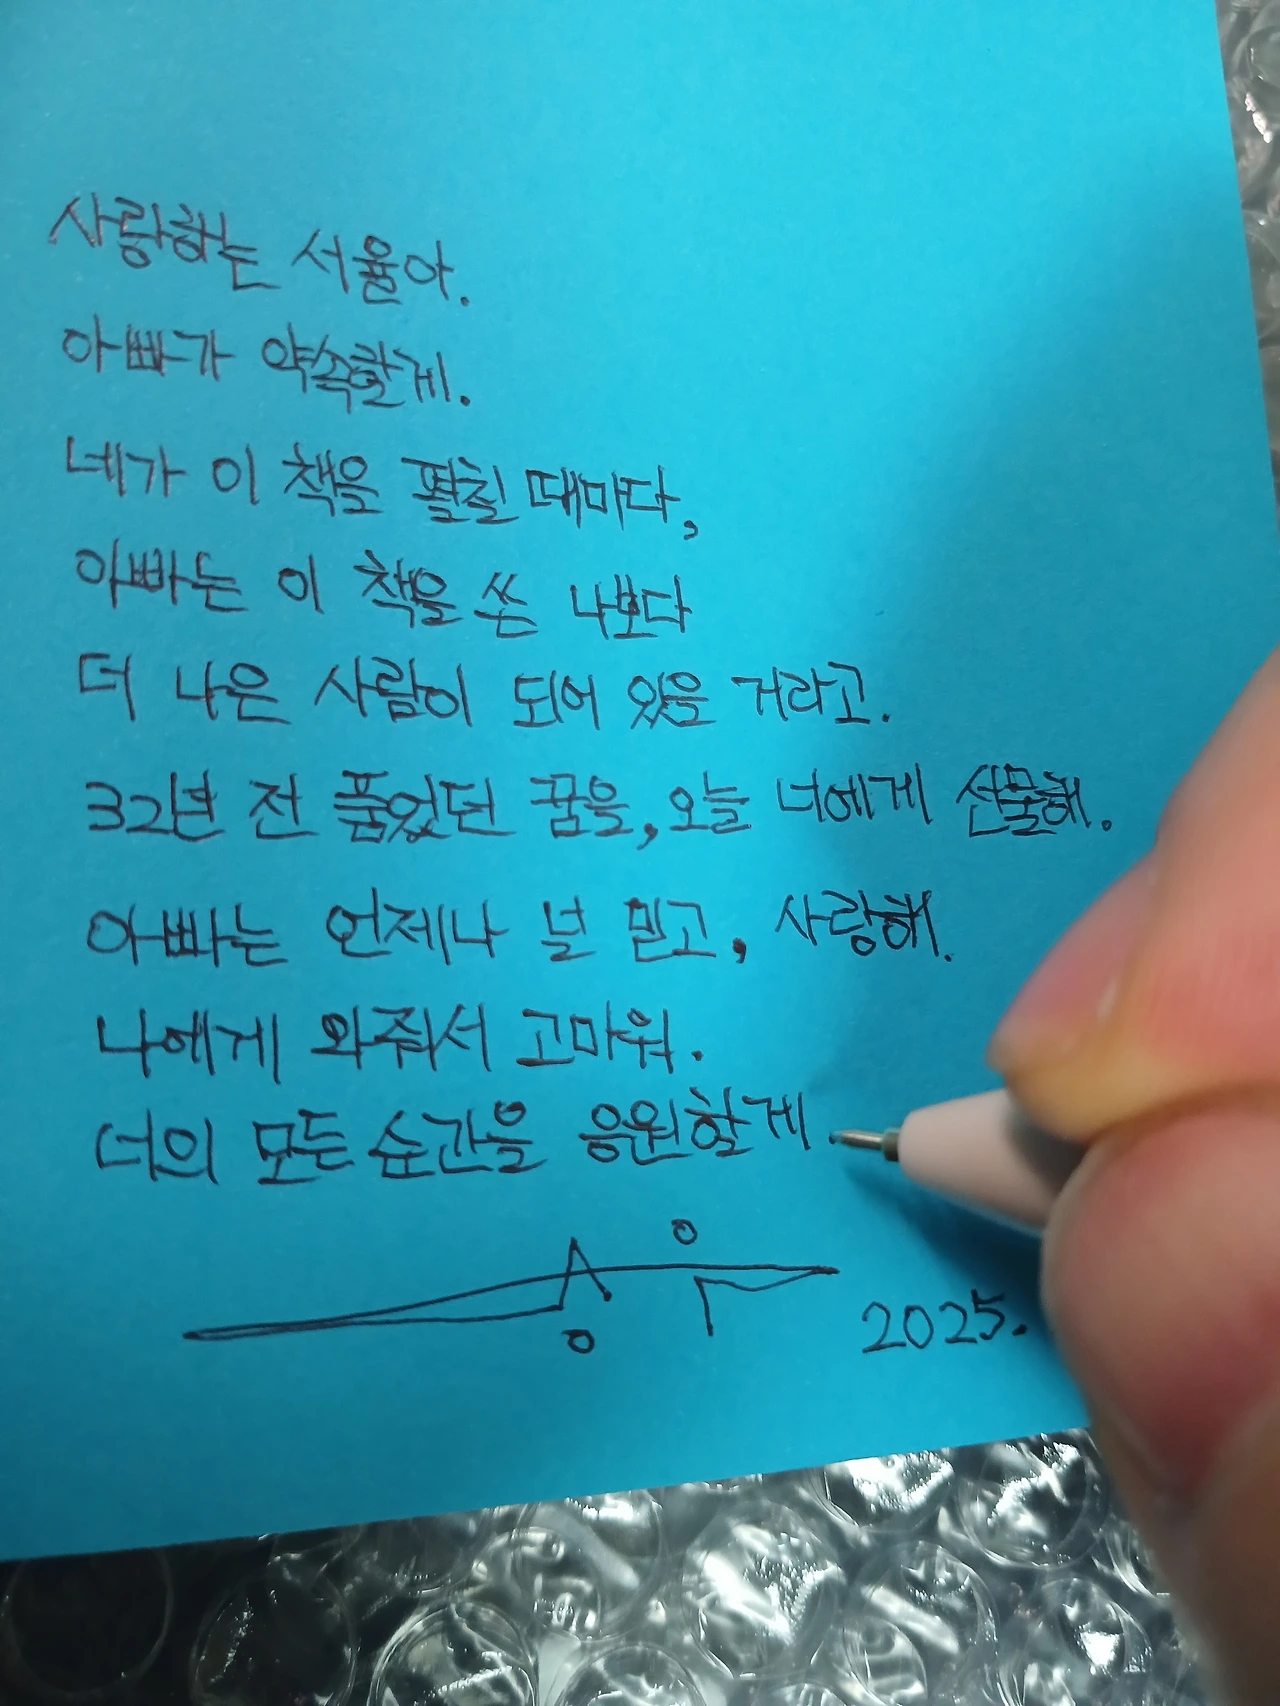 사랑하는 서율아.
아빠가 약속할게.
네가 이 책을 펼칠 때마다,
아빠는 이 책을 쓴 나보다
더 나은 사람이 되어 있을 거라고.
32년 전 품었던 꿈을, 오늘 너에게 선물해.
아빠는 언제나 널 믿고, 사랑해.
나에게 와줘서 고마워.
너의 모든 순간을 응원할게.
2025.